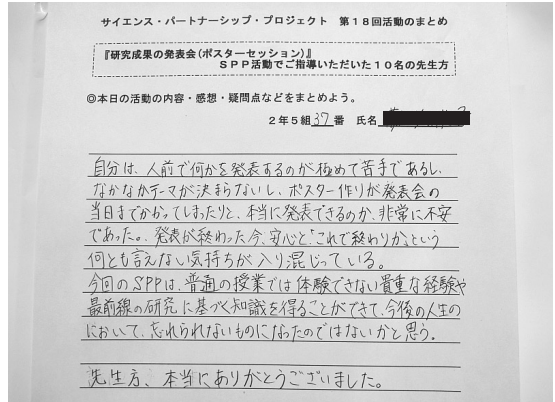 サイエンス・パートナーシップ・プロジェクト　第18回活動のまとめ
『研究成果の発表会(ポスターセッション)』
SPP活動でご指導いただいた10名の先生方
◎本日の活動の内容・感想・疑問点などをまとめよう。
2年5組37番　氏名
自分は、人前で何かを発表するのが極めて苦手であるし、
なかなかテーマが決まらないし、ポスター作りが発表会の
当日までかかってしまったりと、本当に発表できるのか、非常に不安
であった。発表が終わった今、安心と「これで終わりか」という
何とも言えない気持ちが入り混じっている。
今回のSPPは、普通の授業では体験できない貴重な経験や
最前線の研究に基づく知識を得ることができて、今後の人生の
において、忘れられないものになったのではないかと思う。
先生方、本当にありがとうございました。